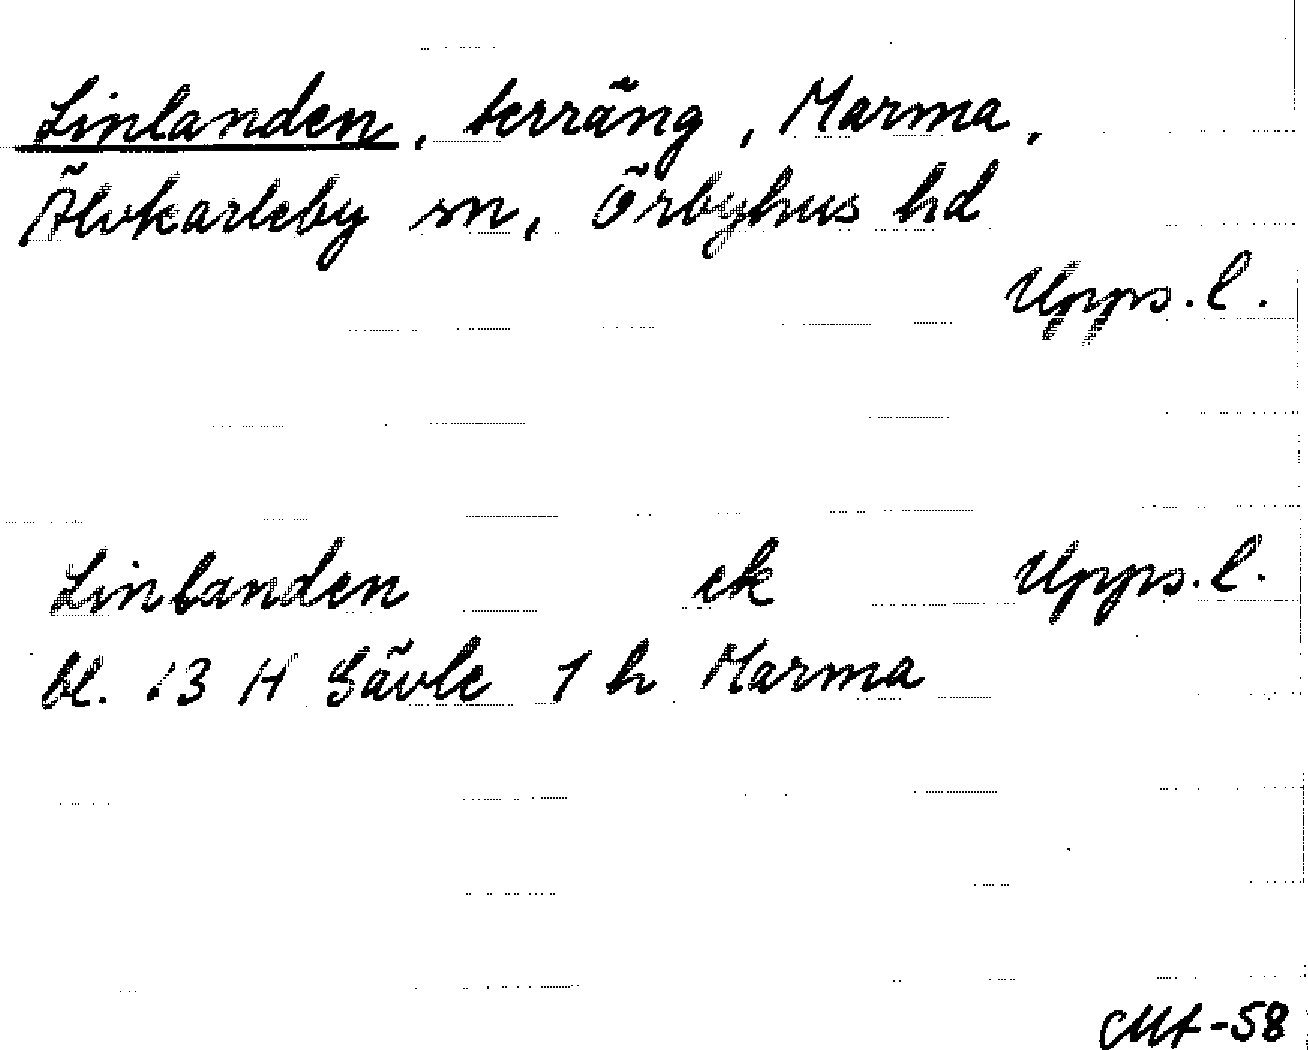 Linlanden, terräng, Marma,
Älvkarleby sn, Örbyhus hd
Upps. l.
Linlanden ek Upps. l.
bl. 13 H Gävle 1 h Marma
-58